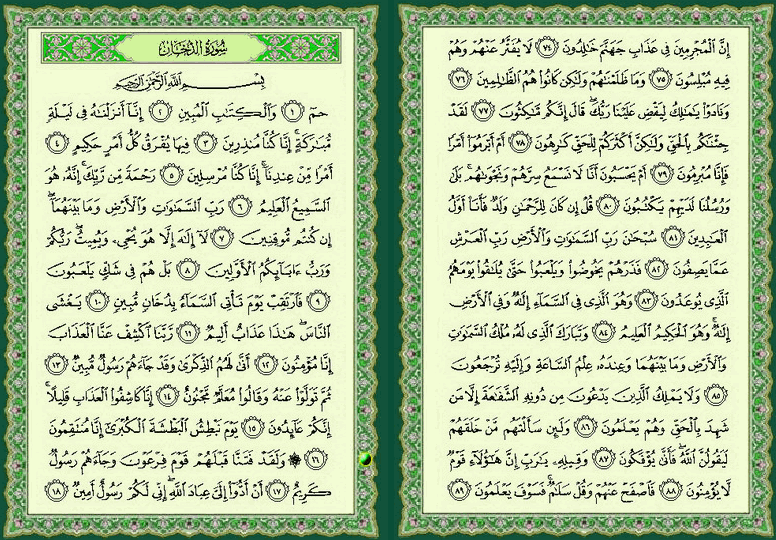 إِنَّ ٱلْمُجْرِمِينَ فِى عَذَابِ جَهَنَّمَ خَٰلِدُونَ ٧٤ لَا يُفَتَّرُ عَنْهُمْ وَهُمْ
فِيهِ مُبْلِسُونَ ٧٥ وَمَا ظَلَمْنَٰهُمْ وَلَٰكِن كَانُوا۟ هُمُ ٱلظَّٰلِمِينَ ٧٦
وَنَادَوْا۟ يَٰمَٰلِكُ لِيَقْضِ عَلَيْنَا رَبُّكَ ۖ قَالَ إِنَّكُم مَّٰكِثُونَ ٧٧ لَقَدْ
جِئْنَٰكُم بِٱلْحَقِّ وَلَٰكِنَّ أَكْثَرَكُمْ لِلْحَقِّ كَٰرِهُونَ ٧٨ أَمْ أَبْرَمُوٓا۟ أَمْرًا
فَإِنَّا مُبْرِمُونَ ٧٩ أَمْ يَحْسَبُونَ أَنَّا لَا نَسْمَعُ سِرَّهُمْ وَنَجْوَىٰهُم ۚ بَلَىٰ
وَرُسُلُنَا لَدَيْهِمْ يَكْتُبُونَ ٨٠ قُلْ إِن كَانَ لِلرَّحْمَٰنِ وَلَدٌ فَأَنَا۠ أَوَّلُ
ٱلْعَٰبِدِينَ ٨١ سُبْحَٰنَ رَبِّ ٱلسَّمَٰوَٰتِ وَٱلْأَرْضِ رَبِّ ٱلْعَرْشِ
عَمَّا يَصِفُونَ ٨٢ فَذَرْهُمْ يَخُوضُوا۟ وَيَلْعَبُوا۟ حَتَّىٰ يُلَٰقُوا۟ يَوْمَهُمُ
ٱلَّذِى يُوعَدُونَ ٨٣ وَهُوَ ٱلَّذِى فِى ٱلسَّمَآءِ إِلَٰهٌ وَفِى ٱلْأَرْضِ
إِلَٰهٌ ۚ وَهُوَ ٱلْحَكِيمُ ٱلْعَلِيمُ ٨٤ وَتَبَارَكَ ٱلَّذِى لَهُۥ مُلْكُ ٱلسَّمَٰوَٰتِ
وَٱلْأَرْضِ وَمَا بَيْنَهُمَا وَعِندَهُۥ عِلْمُ ٱلسَّاعَةِ وَإِلَيْهِ تُرْجَعُونَ
٨٥ وَلَا يَمْلِكُ ٱلَّذِينَ يَدْعُونَ مِن دُونِهِ ٱلشَّفَٰعَةَ إِلَّا مَن
شَهِدَ بِٱلْحَقِّ وَهُمْ يَعْلَمُونَ ٨٦ وَلَئِن سَأَلْتَهُم مَّنْ خَلَقَهُمْ
لَيَقُولُنَّ ٱللَّهُ ۖ فَأَنَّىٰ يُؤْفَكُونَ ٨٧ وَقِيلِهِۦ يَٰرَبِّ إِنَّ هَٰٓؤُلَآءِ قَوْمٌ
لَّا يُؤْمِنُونَ ٨٨ فَٱصْفَحْ عَنْهُمْ وَقُلْ سَلَٰمٌ ۚ فَسَوْفَ يَعْلَمُونَ ٨٩
سُورَةُ الدُّخَانِ
بِسْمِ ٱللَّهِ ٱلرَّحْمَٰنِ ٱلرَّحِيمِ
حمٓ ١ وَٱلْكِتَٰبِ ٱلْمُبِينِ ٢ إِنَّآ أَنزَلْنَٰهُ فِى لَيْلَةٍ
مُّبَٰرَكَةٍ ۚ إِنَّا كُنَّا مُنذِرِينَ ٣ فِيهَا يُفْرَقُ كُلُّ أَمْرٍ حَكِيمٍ ٤
أَمْرًا مِّنْ عِندِنَآ ۚ إِنَّا كُنَّا مُرْسِلِينَ ٥ رَحْمَةً مِّن رَّبِّكَ ۚ إِنَّهُۥ هُوَ
ٱلسَّمِيعُ ٱلْعَلِيمُ ٦ رَبِّ ٱلسَّمَٰوَٰتِ وَٱلْأَرْضِ وَمَا بَيْنَهُمَآ ۖ
إِن كُنتُم مُّوقِنِينَ ٧ لَآ إِلَٰهَ إِلَّا هُوَ يُحْىِۦ وَيُمِيتُ ۖ رَبُّكُمْ
وَرَبُّ ءَابَآئِكُمُ ٱلْأَوَّلِينَ ٨ بَلْ هُمْ فِى شَكٍّ يَلْعَبُونَ
٩ فَٱرْتَقِبْ يَوْمَ تَأْتِى ٱلسَّمَآءُ بِدُخَانٍ مُّبِينٍ ١٠ يَغْشَى
ٱلنَّاسَ ۖ هَٰذَا عَذَابٌ أَلِيمٌ ١١ رَّبَّنَا ٱكْشِفْ عَنَّا ٱلْعَذَابَ
إِنَّا مُؤْمِنُونَ ١٢ أَنَّىٰ لَهُمُ ٱلذِّكْرَىٰ وَقَدْ جَآءَهُمْ رَسُولٌ مُّبِينٌ ١٣
ثُمَّ تَوَلَّوْا۟ عَنْهُ وَقَالُوا۟ مُعَلَّمٌ مَّجْنُونٌ ١٤ إِنَّا كَاشِفُوا۟ ٱلْعَذَابِ قَلِيلًا ۚ
إِنَّكُمْ عَآئِدُونَ ١٥ يَوْمَ نَبْطِشُ ٱلْبَطْشَةَ ٱلْكُبْرَىٰٓ إِنَّا مُنتَقِمُونَ
١٦ ۞ وَلَقَدْ فَتَنَّا قَبْلَهُمْ قَوْمَ فِرْعَوْنَ وَجَآءَهُمْ رَسُولٌ
كَرِيمٌ ١٧ أَنْ أَدُّوٓا۟ إِلَىَّ عِبَادَ ٱللَّهِ ۖ إِنِّى لَكُمْ رَسُولٌ أَمِينٌ ١٨